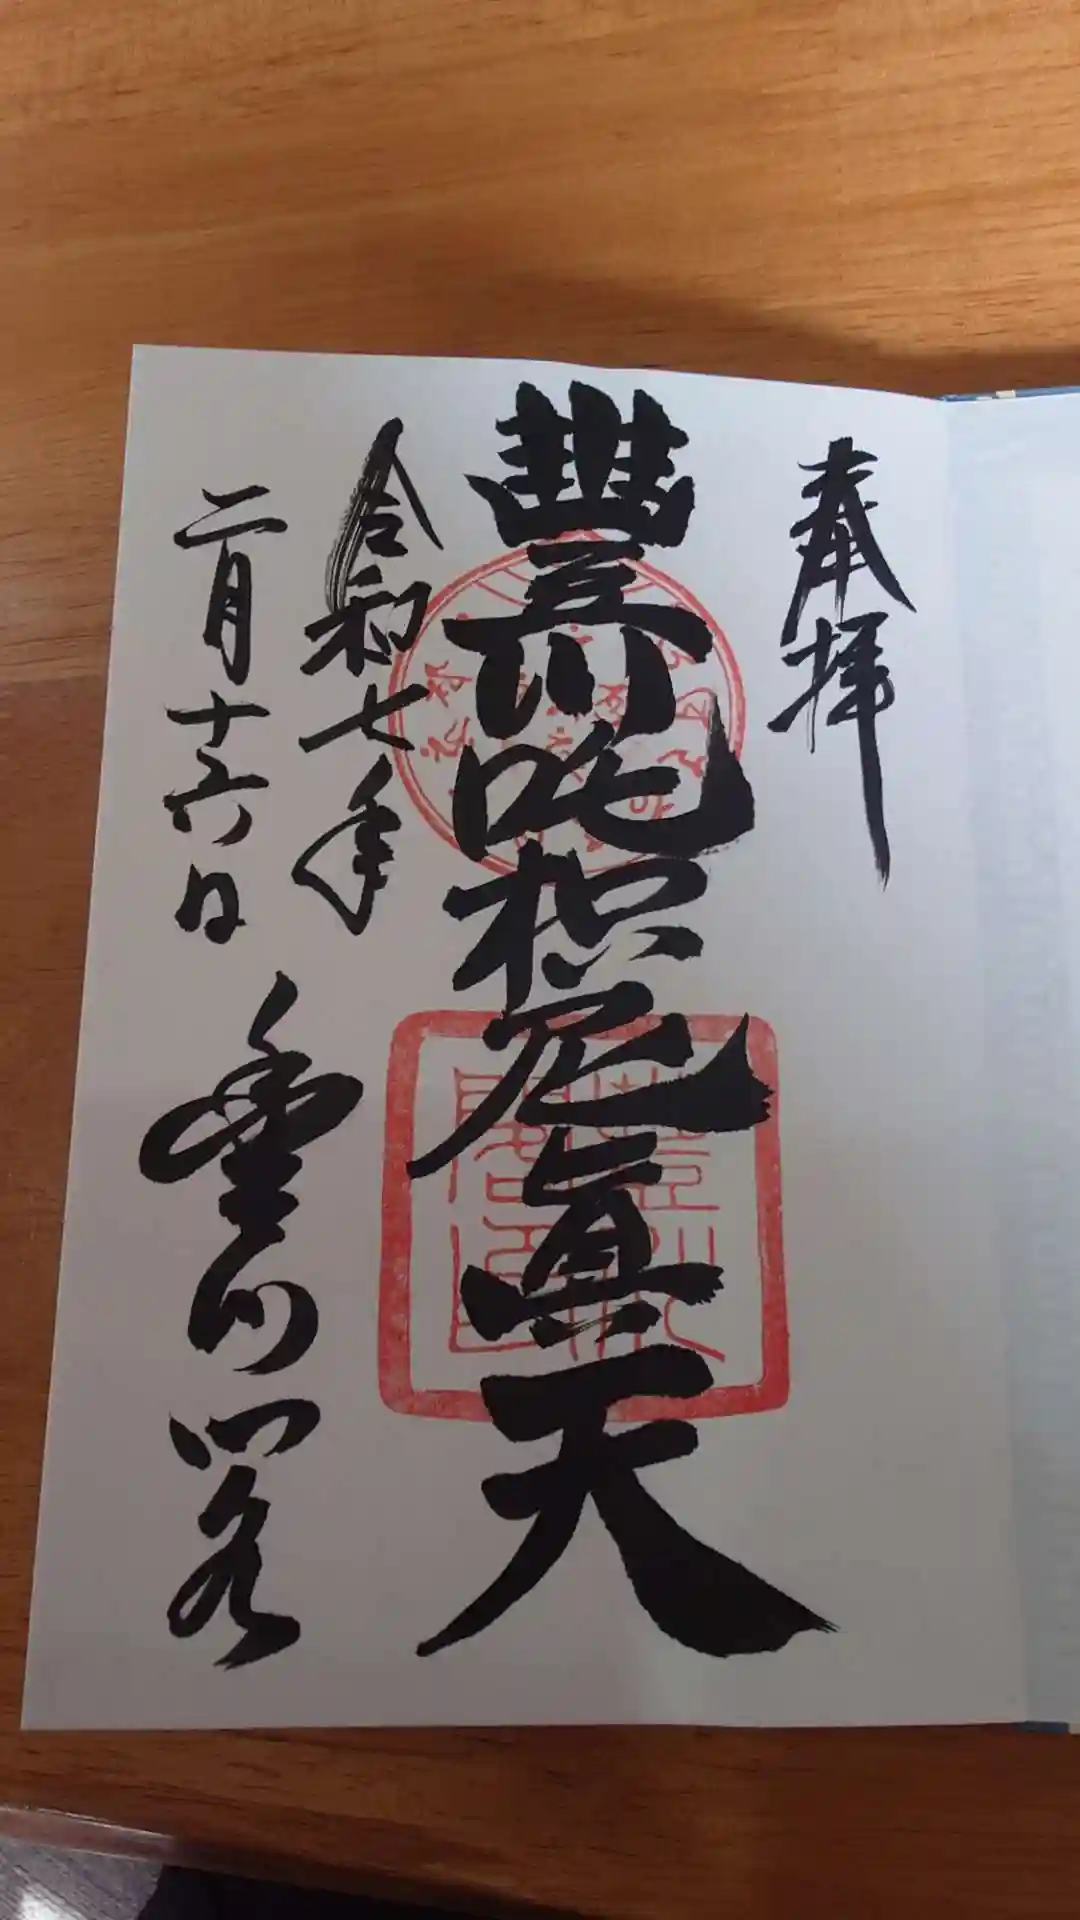 奉拝
豐川吒枳尼眞天
令和七年
二月十六日
豊川閣
豊川閣印